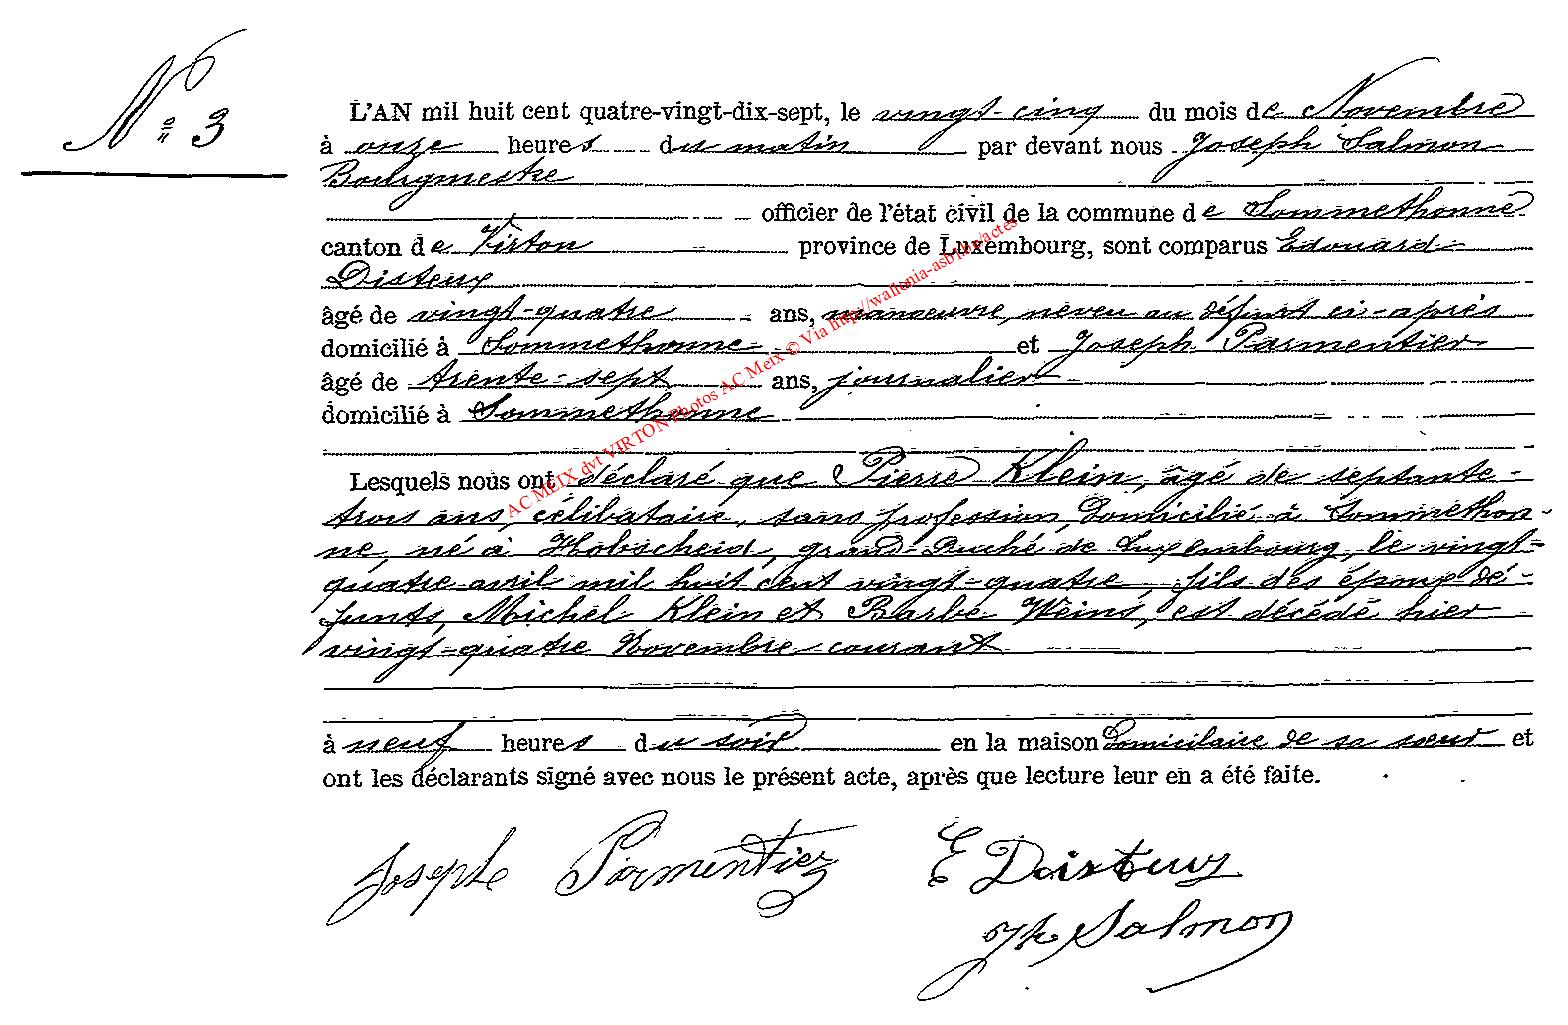 Nº 3
L'AN mil huit cent quatre-vingt-dix-sept, le vingt-cinq du mois de Novembre
à onze heures du matin par devant nous Joseph Salmon
Bourgmestre
officier de l'état civil de la commune de Sommethonne
canton de Virton province de Luxembourg, sont comparus Edouard
Disteux
âgé de vingt-quatre ans, manœuvre, neveu au défunt ci-après
domicilié à Sommethonne et Joseph Parmentier
âgé de trente-sept ans, journalier
domicilié à Sommethonne
Lesquels nous ont déclaré que Pierre Klein, âgé de septante-
trois ans, célibataire, sans profession, domicilié à Sommethon-
ne, né à Hobscheid, grand-Duché de Luxembourg, le vingt-
quatre avril mil huit cent vingt-quatre, fils des époux dé-
funts, Michel Klein et Barbe Weins, est décédé hier
vingt-quatre Novembre courant
à neuf heures du soir en la maison domicilaire de sa sœur et
ont les déclarants signé avec nous le présent acte, après que lecture leur en a été faite.
Joseph Parmentier E Disteux
Jh Salmon
AC MEIX dvt VIRTON Photos AC Meix © Via http://wallonia-asbl.be/actes